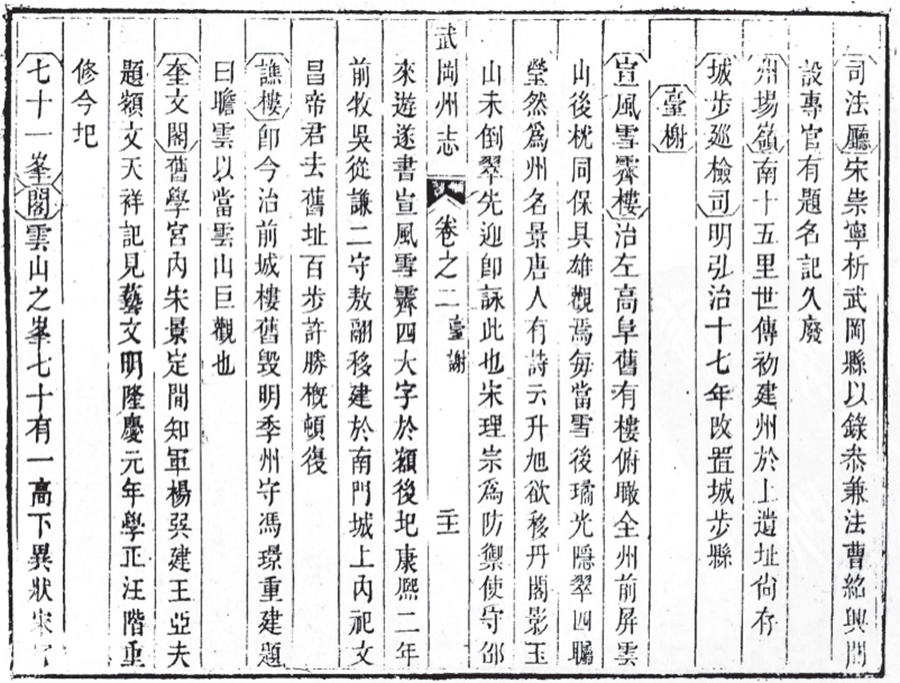 司法廳宋崇寧析武岡縣以錄恭兼法曹紹興間
設專官有題名記久廢
州場嶺南十五里世傳初建州於上遺址尙存
城步廵檢司明弘治十七年改置城步縣
臺榭
宣風雪霽樓治左高阜舊有樓俯瞰全州前屏雲
山後枕同保具雄觀焉每當雪後璚光隱翠四矚
瑩然爲州名景唐人有詩云升旭欲移丹閣影玉
山未倒翠先迎卽詠此也宋理宗爲防禦使守邵
武岡州志 卷之二 臺謝 二十
來遊遂書宣風雪霽四大字於額後圮康熙二年
前牧吳從謙二守敖翮移建於南門城上內祀文
昌帝君去舊址百步許勝槪頓復
譙樓卽今治前城樓舊毀明季州守馮璟重建題
曰瞻雲以當雲山巨觀也
奎文閣舊學宮內宋景定間知軍楊巽建王亞夫
題額文天祥記見藝文明隆慶元年學正汪階重
修今圮
七十一峯閣雲山之峯七十有一高下異狀宋